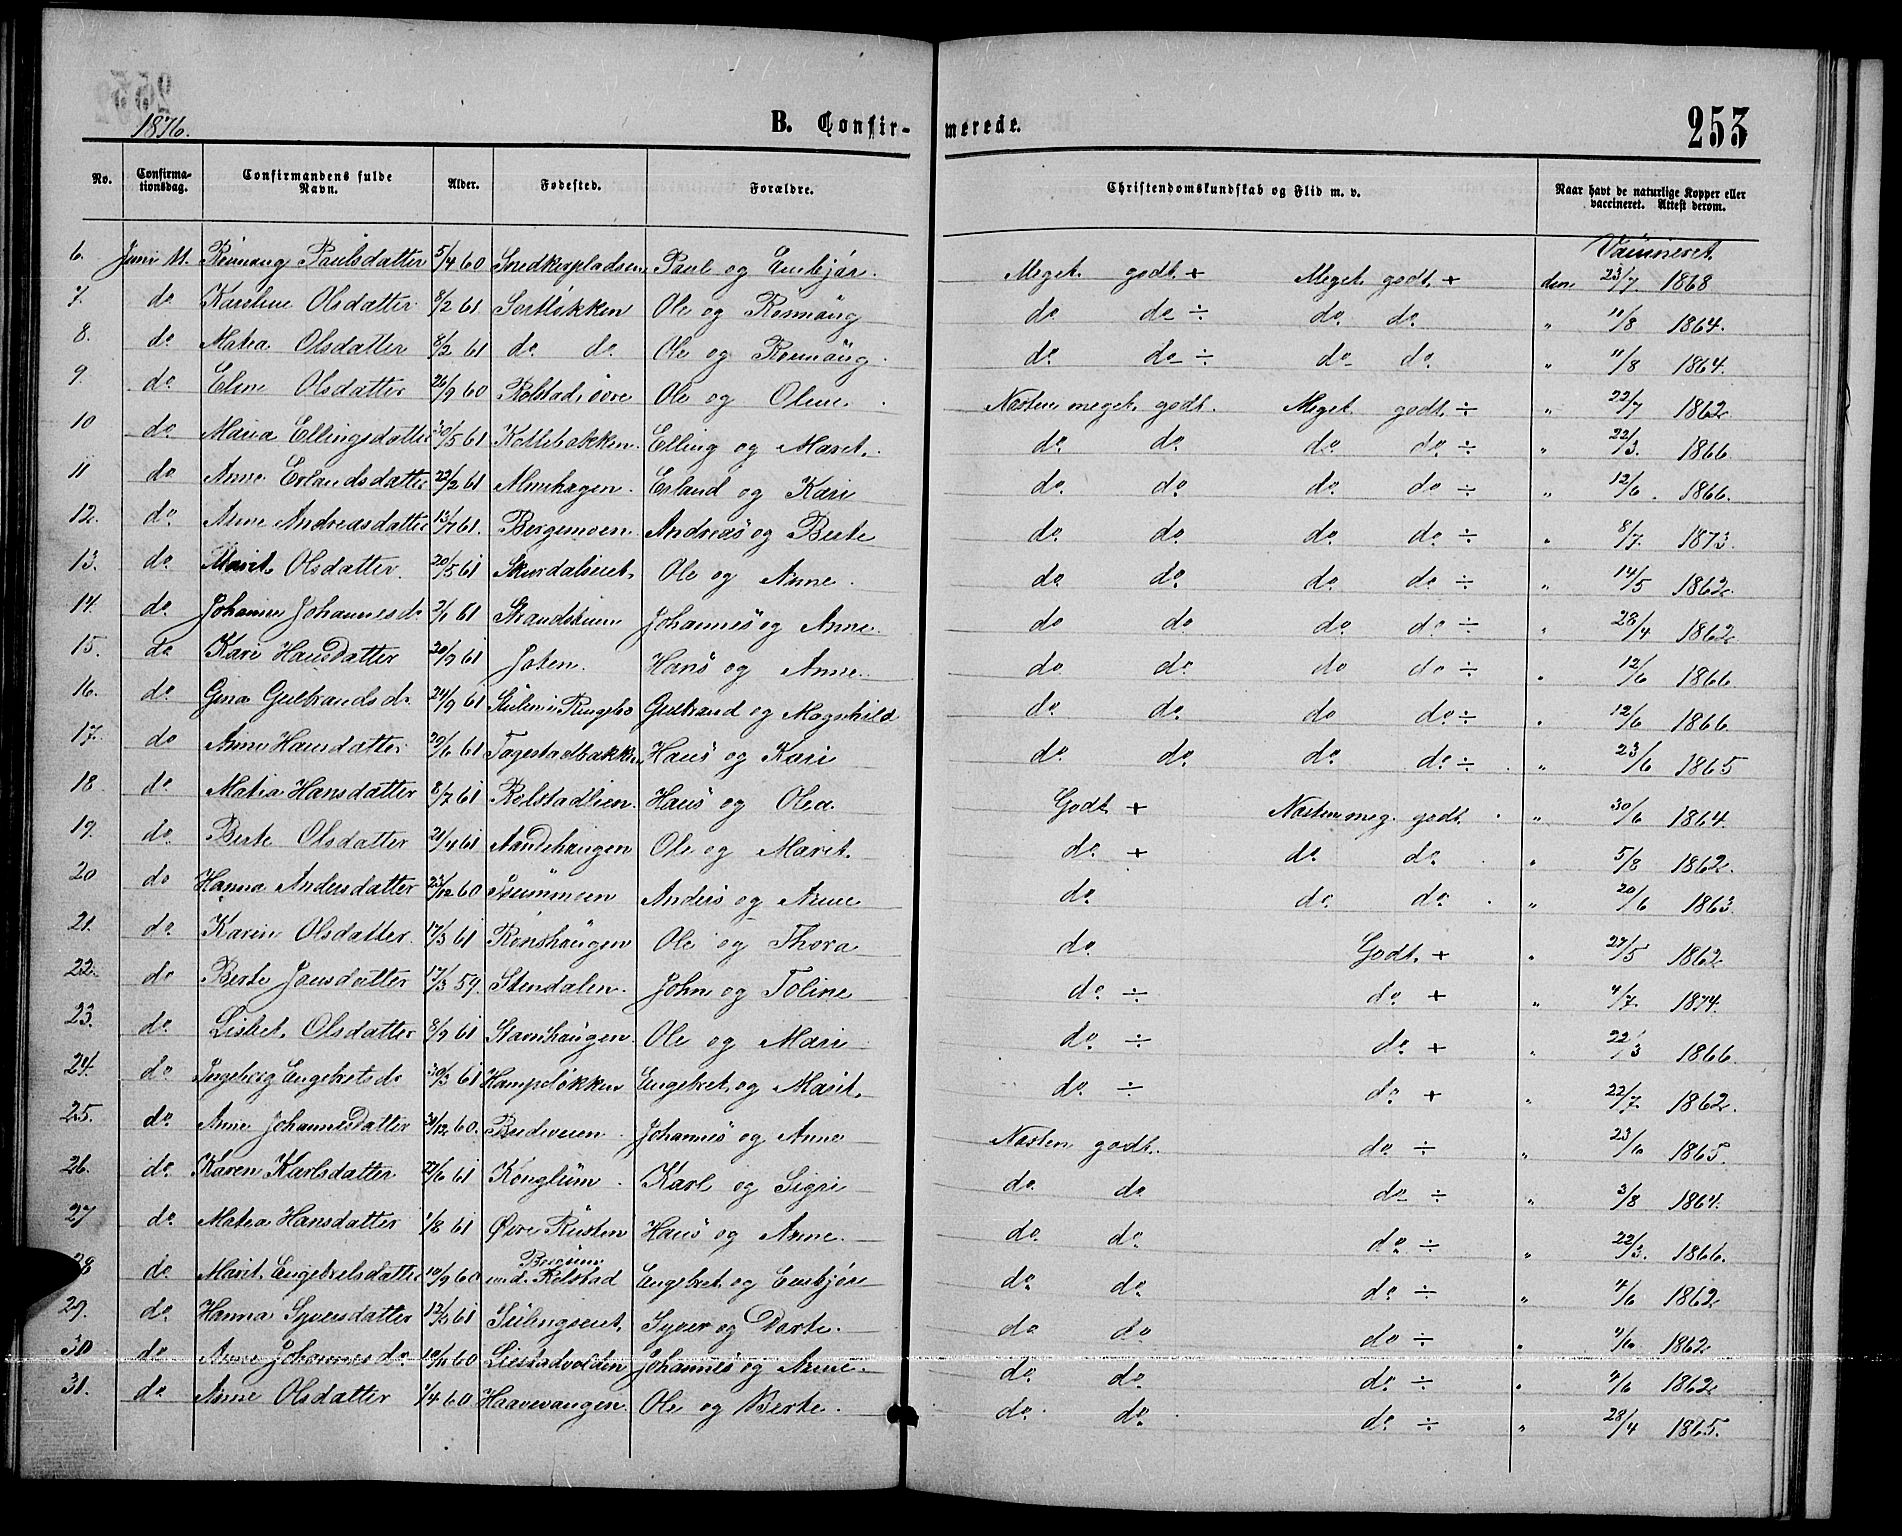 1876. B. Confirmerede. 253
No. Confirmationsdag. Confirmandens fulde Navn. Alder. Fødested. Forældre. Christendomskundskab og Flid m. v. Naar havt de naturlige Kopper eller vaccineret. Attest derom.
Vaccineret
6. Juni 11. Rønnaug Paulsdatter 5/4 60 Snedkerpladsen Paul og Embjør. Meget godt + Meget godt + den 23/7 1868
7. do Karoline Olsdatter 8/2 61 Sortløkken Ole og Rønnaug do do ÷ do do " 11/8 1864.
8. do Matea Olsdatter 8/2 61 do do Ole og Rønnaug. do do ÷ do do " 11/8 1864.
9. do Eline Olsdatter 26/9 60 Rolstad øvre Ole og Oline. Næsten meget godt. Meget godt ÷ " 22/7 1862
10 do Maria Ellingsdatter 30/5 61 Kollebakken. Elling og Marit. do do do do ÷ " 22/3. 1866
11 do Anne Erlandsdatter 22/2 61 Almehagen. Erland og Kari do do do do ÷ " 12/6. 1866.
12. do Anne Andreasdatter 13/7 61. Bergemoen Andreas og Berte do do do do ÷ " 8/7. 1873.
13. do Marit Olsdatter. 20/5 61 Skurdalseiet. Ole og Anne. do do do do ÷ " 14/5 1862
14. do Johanne Johannesd. 2/1 61 Strandstuen Johannes og Anne. do do do do ÷ " 28/4 1862
15. do Kari Hansdatter 20/9 61 Joten. Hans og Anne. do do do do ÷ " 12/6 1866
16. do Gina Gulbrandsd. 24/9 61 Stulen i Ringebo Gulbrand og Magnhild do do do do ÷ " 12/6 1866.
17. do Anne Hansdatter 20/6 61 Togestadbakken Hans og Kari do do do do ÷ " 23/6 1865
18 do Matia Hansdatter 8/7 61 Rolstadlien. Hans og Olea. Godt + Næsten meg. godt. " 30/6 1864.
19. do Berte Olsdatter 21/4 61 Aandehaugen Ole og Marit. do + do do " 5/8 1862.
20 do Hanna Andersdatter 23/12 60 Anders og Anne do do do " 20/6 1863.
21. do Karin Olsdatter. 17/3 61 Rønshaugen Ole og Thora do Godt + " 27/5 1862
22. do Berte Jonsdatter 17/3 59. Stendalen. John og Toline do ÷ do + " 4/7. 1874.
23. do Lisbet Olsdatter 8/9 61 Stavnshaugen. Ole og Mari do ÷ do + " 22/3 1866.
24. do Ingeborg Engebretsd. 30/3 61 Hampeløkken Engebret og Marit. do ÷ do + " 22/7. 1862.
25. do Anne Johannesdatter 31/12 60. Johannes og Anne Næsten godt. do ÷ " 23/6 1865.
26. do Karen Karlsdatter 27/6 61 Konglum. Karl og Sigri do do do ÷ " 3/8 1864.
27 do Matea Hansdatter 1/8 61 Øvre Rusten Hans og Anne. do do do ÷ " 22/3. 1866.
28 do Marit Engebretsdatter 10/9 60 und. Rolstad Engebret og Embjør do do do ÷ " 4/6 1862
29. do Hanna Syversdatter 12/3 61 Syver og Dorte. do do do ÷ " 4/6. 1862
30 do Anne Johannesd. 10/11 60 Listadvolden Johannes og Anne. do do do ÷ " 4/6 1862
31. do Anne Olsdatter 1/4 60 Haavevangen. Ole og Berte. do do do ÷ " 28/4 1865.